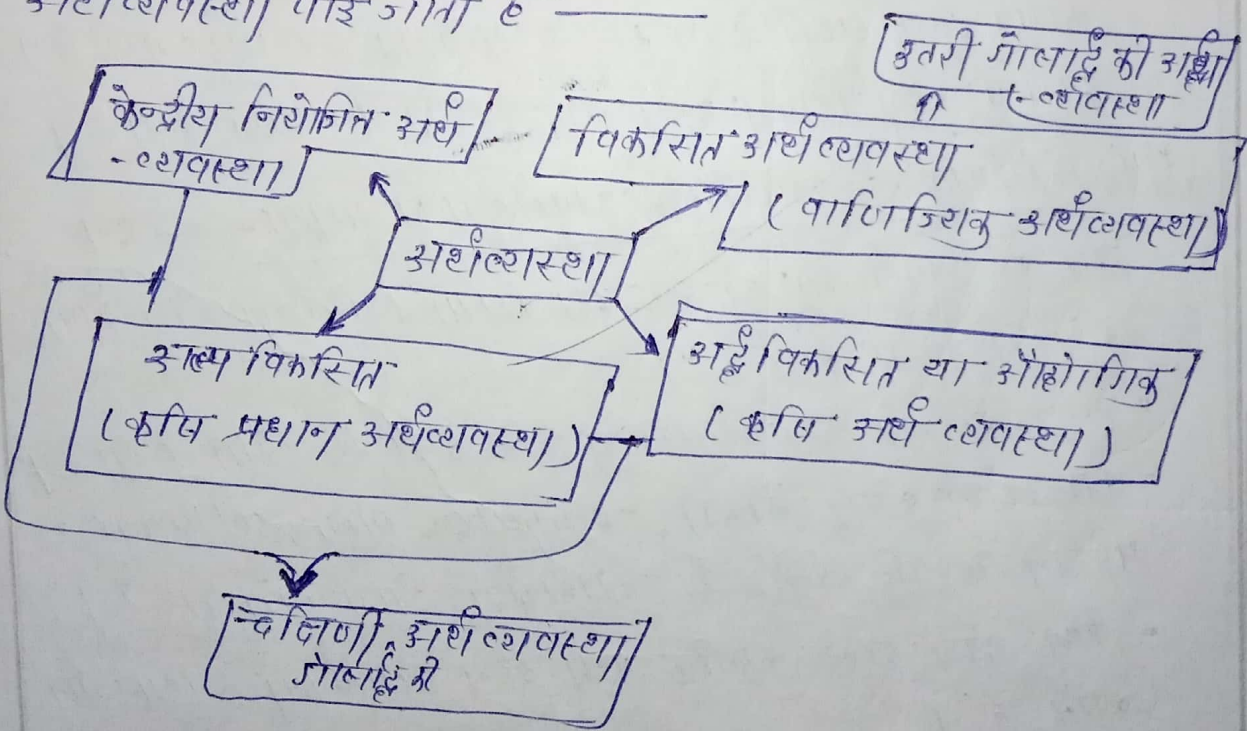 अर्थव्यवस्था पाई जाती है
उतरी गोलार्द्ध की अर्थ
-व्यवस्था
केन्द्रीय नियोजित अर्थ
-व्यवस्था
विकसित अर्थव्यवस्था
(वाणिज्यिक अर्थव्यवस्था)
अर्थव्यस्था
अल्प विकसित
(कृषि प्रधान अर्थव्यवस्था)
अर्द्ध विकसित या औद्योगिक
(कृषि अर्थ व्यवस्था)
दक्षिणी अर्थव्यवस्था
गोलार्द्ध की